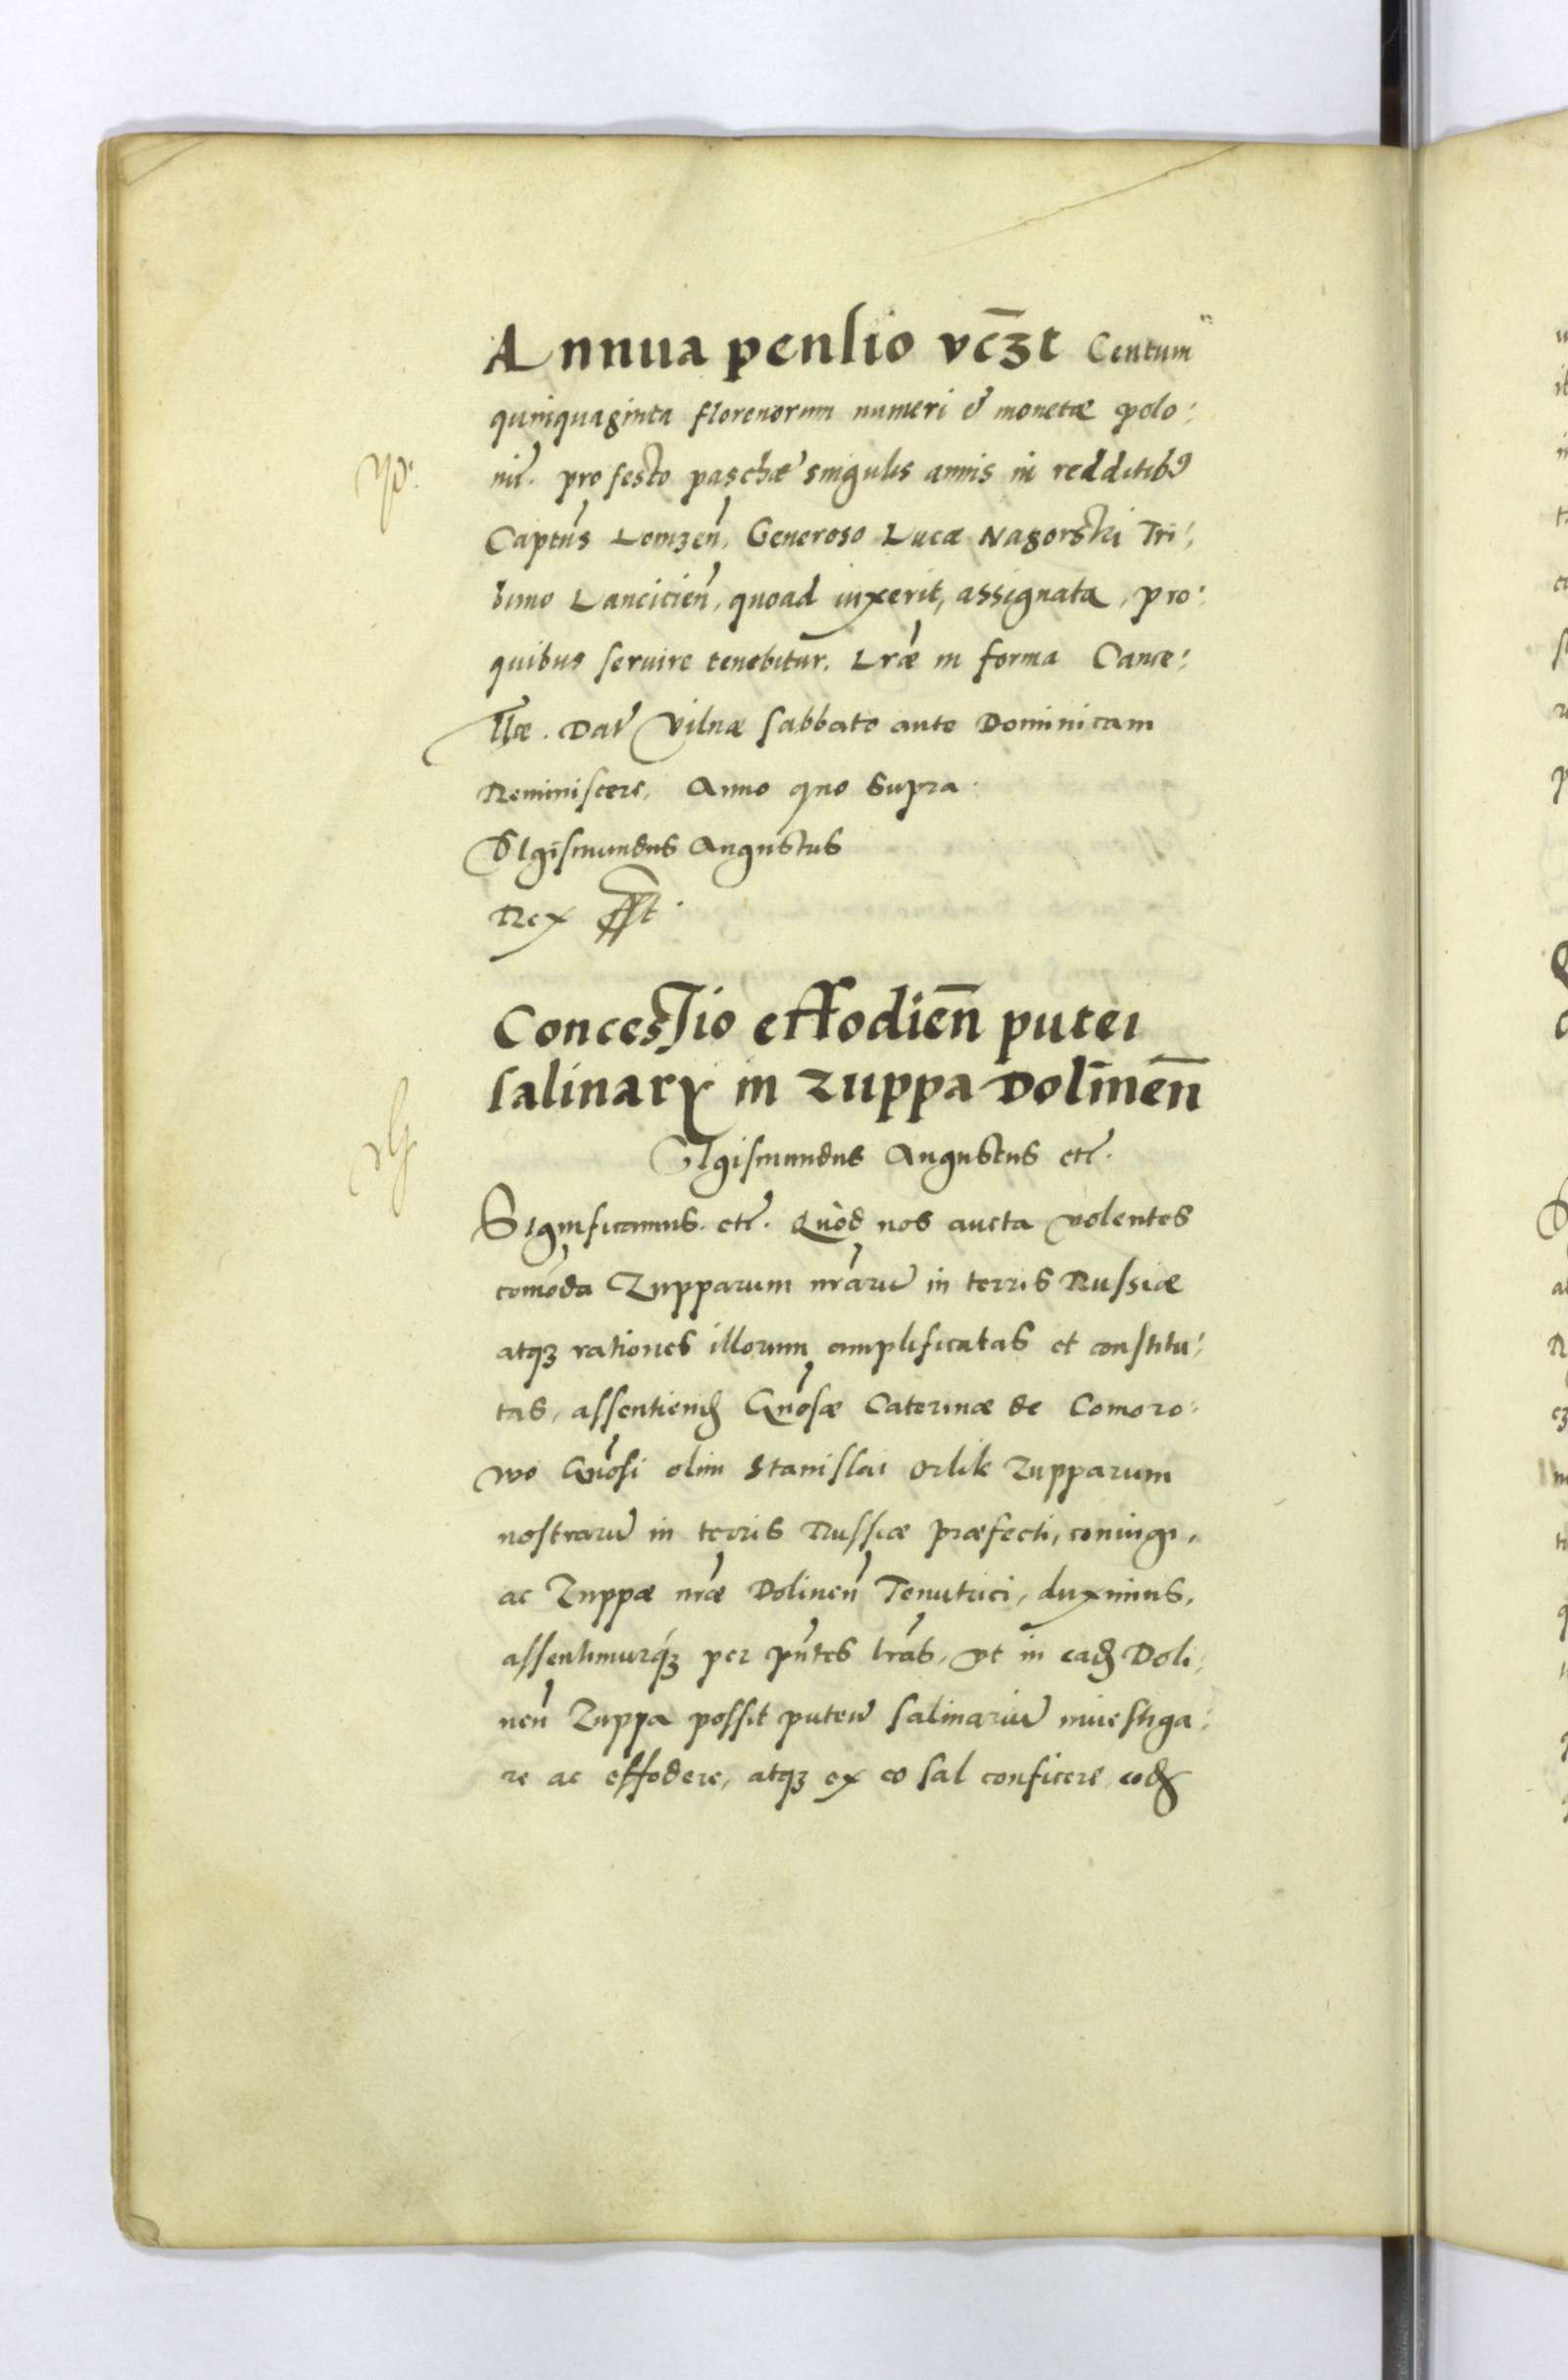 Annua pensio vcꝫt Centum
quinquaginta florenorum numeri et monetæ polo:
nir̃. pro festo paschæ singulis annis in redditibꝰ
Captus̃ Lomzen̄, Generoso Lucæ Nagorski Tri:
buno Lancicien̄, quoad vixerit, assignata, pro:
quibus seruire tenebitur. Lr̃æ in forma Cance:
llæ. Dat̃ Vilnæ sabbato ante Dominicam
Reminiscere, Anno quo supra.
SIgismundus Augustus
Rex
Concessio effodien̄ putei
salinarꝝ in zuppa Dolinen̄
SIgismundus Augustus etc̃.
Significamus. etc̃. Quòd nos aucta volentes
com̄oda Zupparum nr̃arũ in terris Russiæ
atqꝫ rationes illorum amplificatas et constitu:
tas, assentiend̃ Gn̄osæ Caterinæ de Comoro:
wo Gn̄osi olim Stanislai Orlik Zupparum
nostrarũ in terris Russiæ præfecti, coniugi,
ac Zuppæ nr̃æ Dolinen̄ Tenutrici, duximus,
assentimurqꝫ per pn̄tes lr̃as, vt in ead̃ Doli:
nen̄ Zuppa possit puteũ salinariũ inuestiga:
re ac effodere, atqꝫ ex eo sal conficere, eod̃